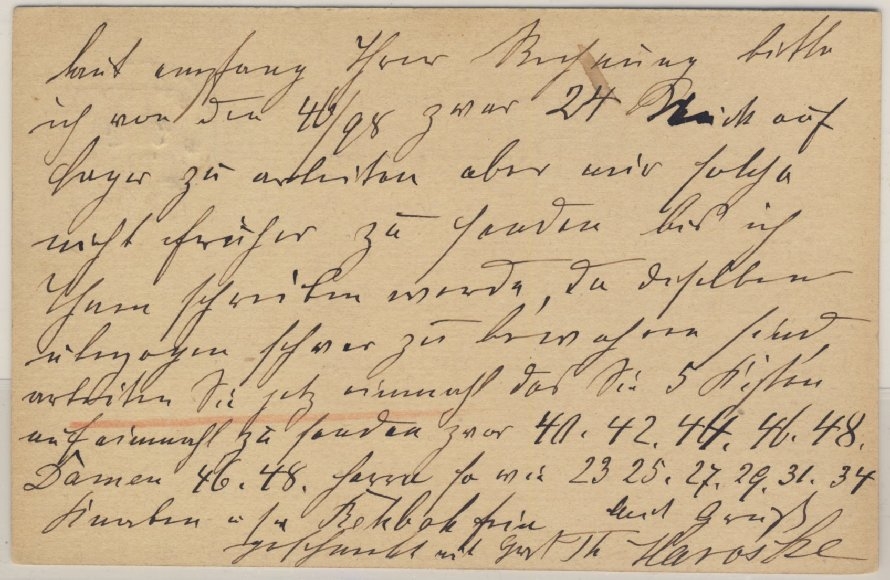 laut empfang Ihrer Rechnung bitte
ich von den 40/98 zwar 24 Stück auf
Lager zu arbeiten aber mir solche
nicht früher zu senden bis ich
Ihnen schreiben werde, da dieselben
überzogen schwer zu bewahren sind,
arbeiten Sie jetz einmahl das Sie 5 Kisten
auf einmahl zu senden zwar 40. 42. 44. 46. 48.
Damen 46. 48. Herrn so wie 23 25. 27. 29. 31. 34
Knaben fein mit Gruß
Th Haroske